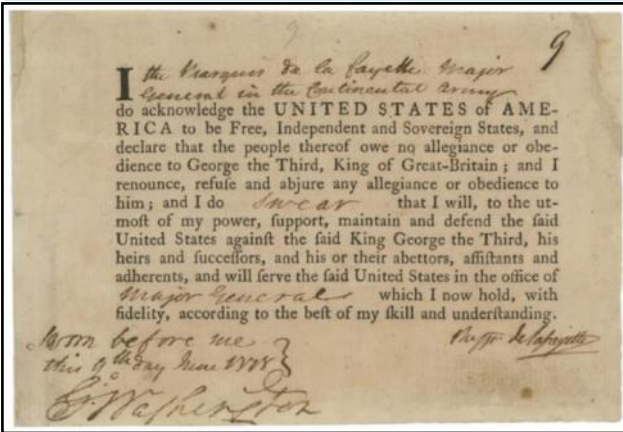 9
I the Marquis de la fayette Major
General in the Continental Army
do acknowledge the UNITED STATES of AME-
RICA to be Free, Independent and Sovereign States, and
declare that the people thereof owe no allegiance or obe-
dience to George the Third, King of Great-Britain; and I
renounce, refuſe and abjure any allegiance or obedience to
him; and I do Swear that I will, to the ut-
moſt of my power, ſupport, maintain and defend the ſaid
United States againſt the ſaid King George the Third, his
heirs and ſucceſſors, and his or their abettors, aſſiſtants and
adherents, and will ſerve the ſaid United States in the office of
Major General which I now hold, with
fidelity, according to the beſt of my ſkill and underſtanding.
Sworn before me
de Lafayette
this 9th day June 1778
G:o Washington